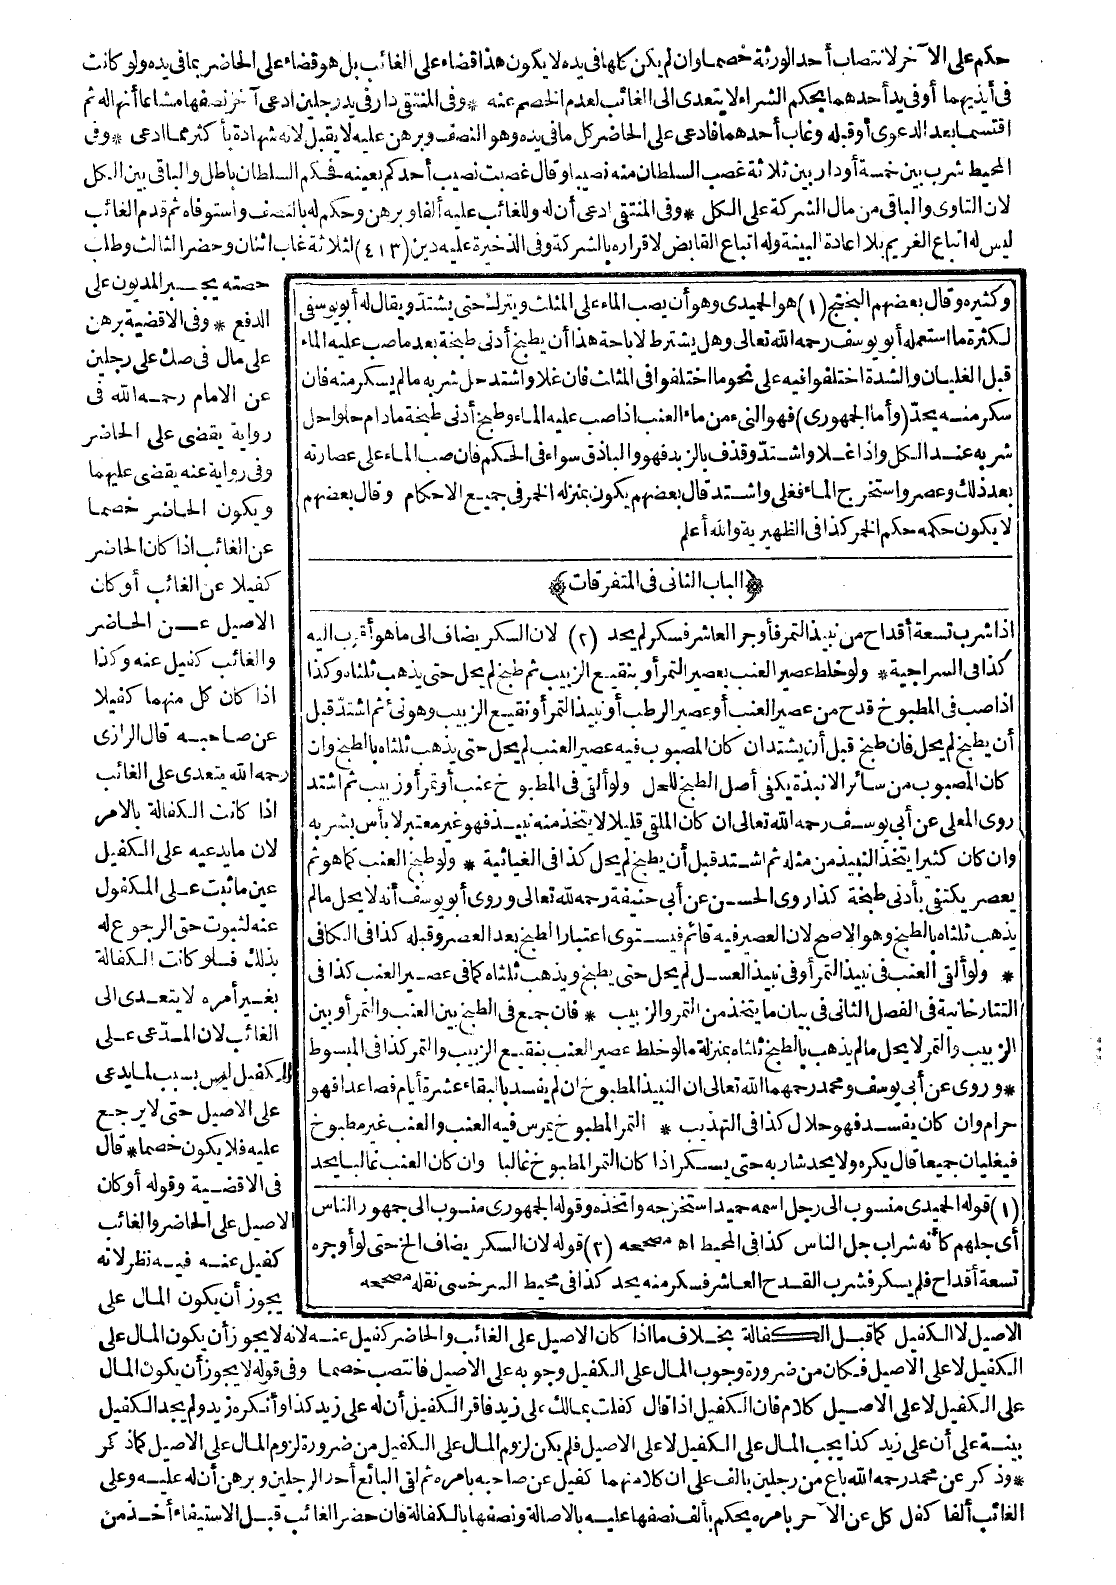 حكم على الآخر لانتصاب أحد الورثة خصما وان لم يكن كلها في يده لا يكون هذا قضاء على الغائب بل هو قضاء على الحاضر بما في يده ولو كانت
في أيديهما أو في يد أحدهما يحكم الشراء لا يتعدى الى الغائب لعدم الخصم عنه * وفي المنتقى دار في يد رجلين ادعى آخر نصفها مشاعا أنها له ثم
اقتسما بعد الدعوى أو قبله وغاب أحدهما فادعى على الحاضر كل ما في يده وهو النصف وبرهن عليه لا يقبل لانه شهادة بأكثر مما ادعى * وفي
المحيط شرب بين خمسة أو دار بين ثلاثة غصب السلطان منه نصيبا وقال غصبت نصيب أحدكم بعينه فحكم السلطان باطل والباقي بين الكل
لان التاوى والباقي من مال الشركة على الكل * وفي المنتقى ادعى أن له وللغائب عليه ألفا وبرهن وحكم له بالنصف واستوفاه ثم قدم الغائب
ليس له اتباع الغريم بلا اعادة البينة وله اتباع القابض لاقراره بالشركة وفي الذخيرة عليه دين (٤١٣) لثلاثة غاب اثنان وحضر الثالث وطلب
حصته يجبر المديون على
الدفع * وفي الاقضية برهن
على مال في صك على رجلين
عن الامام رحمه الله في
رواية يقضى على الحاضر
وفي رواية عنه يقضى عليهما
ويكون الحاضر خصما
عن الغائب اذا كان الحاضر
كفيلا عن الغائب أو كان
الاصيل عن الحاضر
والغائب كفيل عنه وكذا
اذا كان كل منهما كفيلا
عن صاحبه قال الرازى
رحمه الله يتعدى على الغائب
اذا كانت الكفالة بالامر
لان ما يدعيه على الكفيل
عين ما ثبت على المكفول
عنه لثبوت حق الرجوع له
بذلك فلو كانت الكفالة
بغير أمره لا يتعدى الى
الغائب لان المدعى على
الكفيل ليس بسبب لما يدعى
على الاصيل حتى لا يرجع
عليه فلا يكون خصما * قال
في الاقضية وقوله أو كان
الاصيل على الحاضر والغائب
كفيل عنه فيه نظر لانه
يجوز أن يكون المال على
وكثيره وقال بعضهم البختج (١) هو الحميدى وهو أن يصب الماء على المثلث ويترك حتى يشتد ويقال له أبو يوسفى
لكثرة ما استعمله أبو يوسف رحمه الله تعالى وهل يشترط لاباحة هذا أن يطبخ أدنى طبخة بعد ما صب عليه الماء
قبل الغليان والشدة اختلفوا فيه على نحو ما اختلفوا في المثلث فان غلا واشتد حل شربه ما لم يسكر منه فان
سكر منه يحد (وأما الجمهورى) فهو النىء من ماء العنب اذا صب عليه الماء وطبخ أدنى طبخة مادام حلوا حل
شربه عند الكل واذا غلا واشتد وقذف بالزبد فهو والباذق سواء في الحكم فان صب الماء على عصارته
بعد ذلك وعصر واستخرج الماء فغلى واشتد قال بعضهم يكون بمنزله الخمر في جميع الاحكام وقال بعضهم
لا يكون حكمه حكم الخمر كذا في الظهيرية والله أعلم
﴿الباب الثانى في المتفرقات﴾
اذا شرب تسعة أقداح من نبيذ التمر فأوجر العاشر فسكر لم يحد (٢) لان السكر يضاف الى ما هو أقرب اليه
كذا في السراجية * ولو خلط عصير العنب بعصير التمر أو بنقيع الزبيب ثم طبخ لم يحل حتى يذهب ثلثاه وكذا
اذا صب في المطبوخ قدح من عصير العنب أو عصير الرطب أو نبيذ التمر أو نقيع الزبيب وهو نىء ثم اشتد قبل
أن يطبخ لم يحل فان طبخ قبل أن يشتد ان كان المصبوب فيه عصير العنب لم يحل حتى يذهب ثلثاه بالطبخ وان
كان المصبوب من سائر الانبذة يكفى أصل الطبخ للحل ولو ألقى في المطبوخ عنب أو تمر أو زبيب ثم اشتد
روى المعلى عن أبى يوسف رحمه الله تعالى ان كان الملقى قليلا لا يتخذ منه نبيذ فهو غير معتبر لا بأس بشربه
وان كان كثيرا يتخذ النبيذ من مثله ثم اشتد قبل أن يطبخ لم يحل كذا في الغياثية * ولو طبخ العنب كما هو ثم
يعصر يكتفى بأدنى طبخة كذا روى الحسن عن أبى حنيفة رحمه الله تعالى وروى أبو يوسف أنه لا يحل ما لم
يذهب ثلثاه بالطبخ وهو الاصح لان العصير فيه قائم فيستوى اعتبار الطبخ بعد العصر وقبله كذا في الكافي
* ولو ألقى العنب في نبيذ التمر أو في نبيذ العسل لم يحل حتى يطبخ ويذهب ثلثاه كما في عصير العنب كذا في
التتارخانية في الفصل الثانى في بيان ما يتخذ من التمر والزبيب * فان جمع في الطبخ بين العنب والتمر أو بين
الزبيب والتمر لا يحل ما لم يذهب بالطبخ ثلثاه بمنزلة ما لو خلط عصير العنب بنقيع الزبيب والتمر كذا في المبسوط
* وروى عن أبى يوسف ومحمد رحمهما الله تعالى ان النبيذ المطبوخ ان لم يفسد بالبقاء عشرة أيام فصاعدا فهو
حرام وان كان يفسد فهو حلال كذا في التهذيب * التمر المطبوخ يمرس فيه العنب والعنب غير مطبوخ
فيغليان جميعا قال يكره ولا يحد شاربه حتى يسكر اذا كان التمر المطبوخ غالبا وان كان العنب غالبا يحد
(١) قوله الحميدى منسوب الى رجل اسمه حميد استخرجه واتخذه وقوله الجمهورى منسوب الى جمهور الناس
أى جلهم كأنه شراب جل الناس كذا في المحيط اه مصححه (٢) قوله لان السكر يضاف الخ حتى لو أوجره
تسعة أقداح فلم يسكر فشرب القدح العاشر فسكر منه يحد كذا في محيط السرخسى نقله مصححه
الاصيل لا الكفيل كما قبل الكفالة بخلاف ما اذا كان الاصيل على الغائب والحاضر كفيل عنه لانه لا يجوز أن يكون المال على
الكفيل لا على الاصيل فكان من ضرورة وجوب المال على الكفيل وجوبه على الاصيل فانتصب خصما وفي قوله لا يجوز أن يكون المال
على الكفيل لا على الاصيل كلام فان الكفيل اذا قال كفلت بمالك على زيد فاقر الكفيل أن له على زيد كذا وأنكره زيد ولم يجد الكفيل
بينة على أن على زيد كذا يجب المال على الكفيل لا على الاصيل فلم يكن لزوم المال على الكفيل من ضرورة لزوم المال على الاصيل كما ذكر
* وذكر عن محمد رحمه الله باع من رجلين بالف على ان كلا منهما كفيل عن صاحبه بامره ثم لقى البائع أحد الرجلين وبرهن أن له عليه وعلى
الغائب ألفا كفل كل عن الآخر بامره يحكم بألف نصفها عليه بالاصالة ونصفها بالكفالة فان حضر الغائب قبل الاستيفاء أخذ من